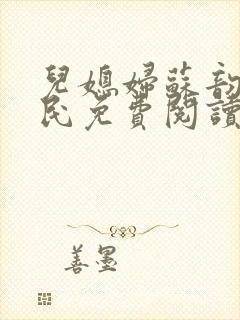 兒媳婦蘇韵
民免費閱讀
善墨